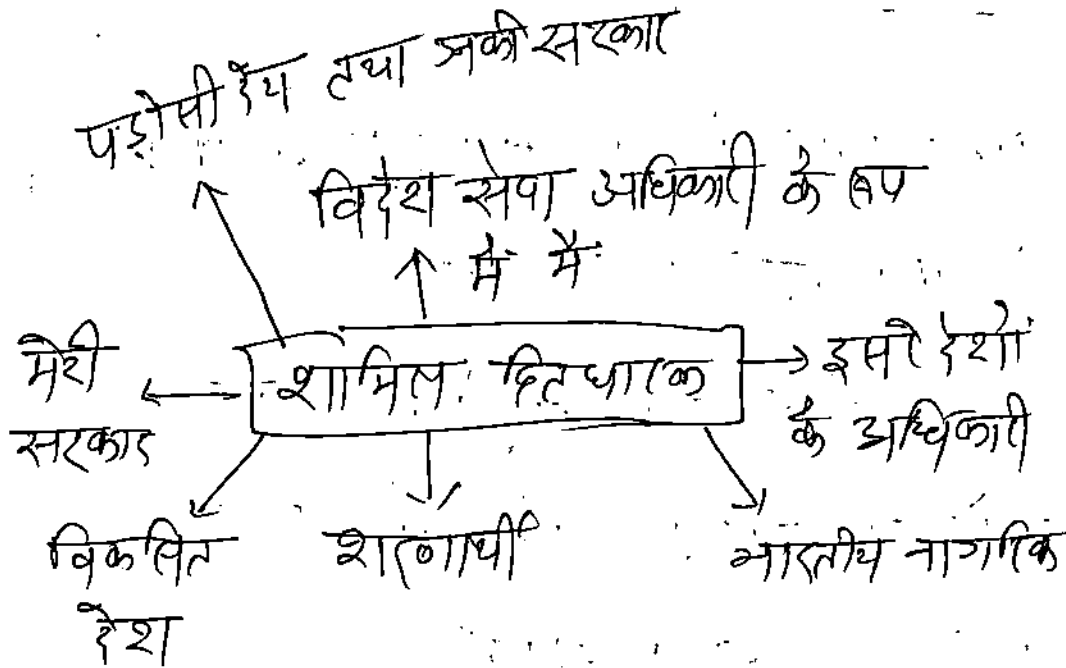 पड़ोसी देश तथा उनकी सरकार
विदेश सेवा अधिकारी के रूप
में मैं
मेरी
सरकार
शामिल हितधारक
दूसरे देशों
के अधिकारी
विकसित
देश
शरणार्थी
भारतीय नागरिक